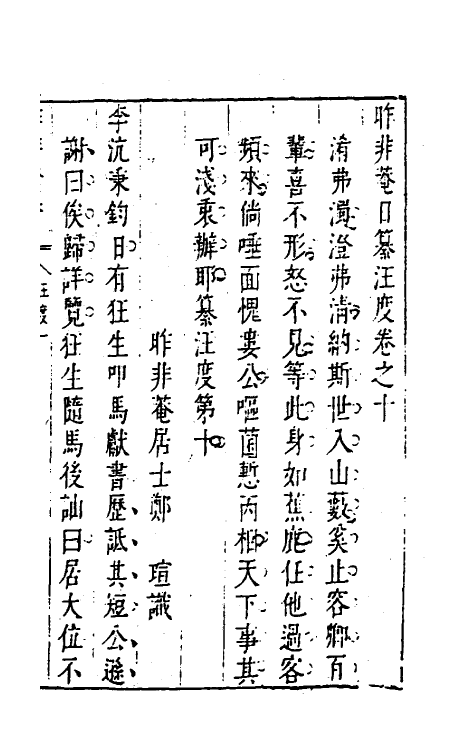 昨非菴日纂汪度卷之十
淆弗濁澄弗清納斯世入山藪奚止容卿百
輩喜不形怒不見等此身如蕉鹿任他過客
頻來倘唾面愧婁公嘔茵慙丙相天下事其
可淺衷辦耶纂汪度第十
昨非菴居士鄭　瑄識
李沆秉鈞日有狂生叩馬獻書歷詆其短公遜
謝曰俟歸詳覽狂生隨馬後訕曰居大位不